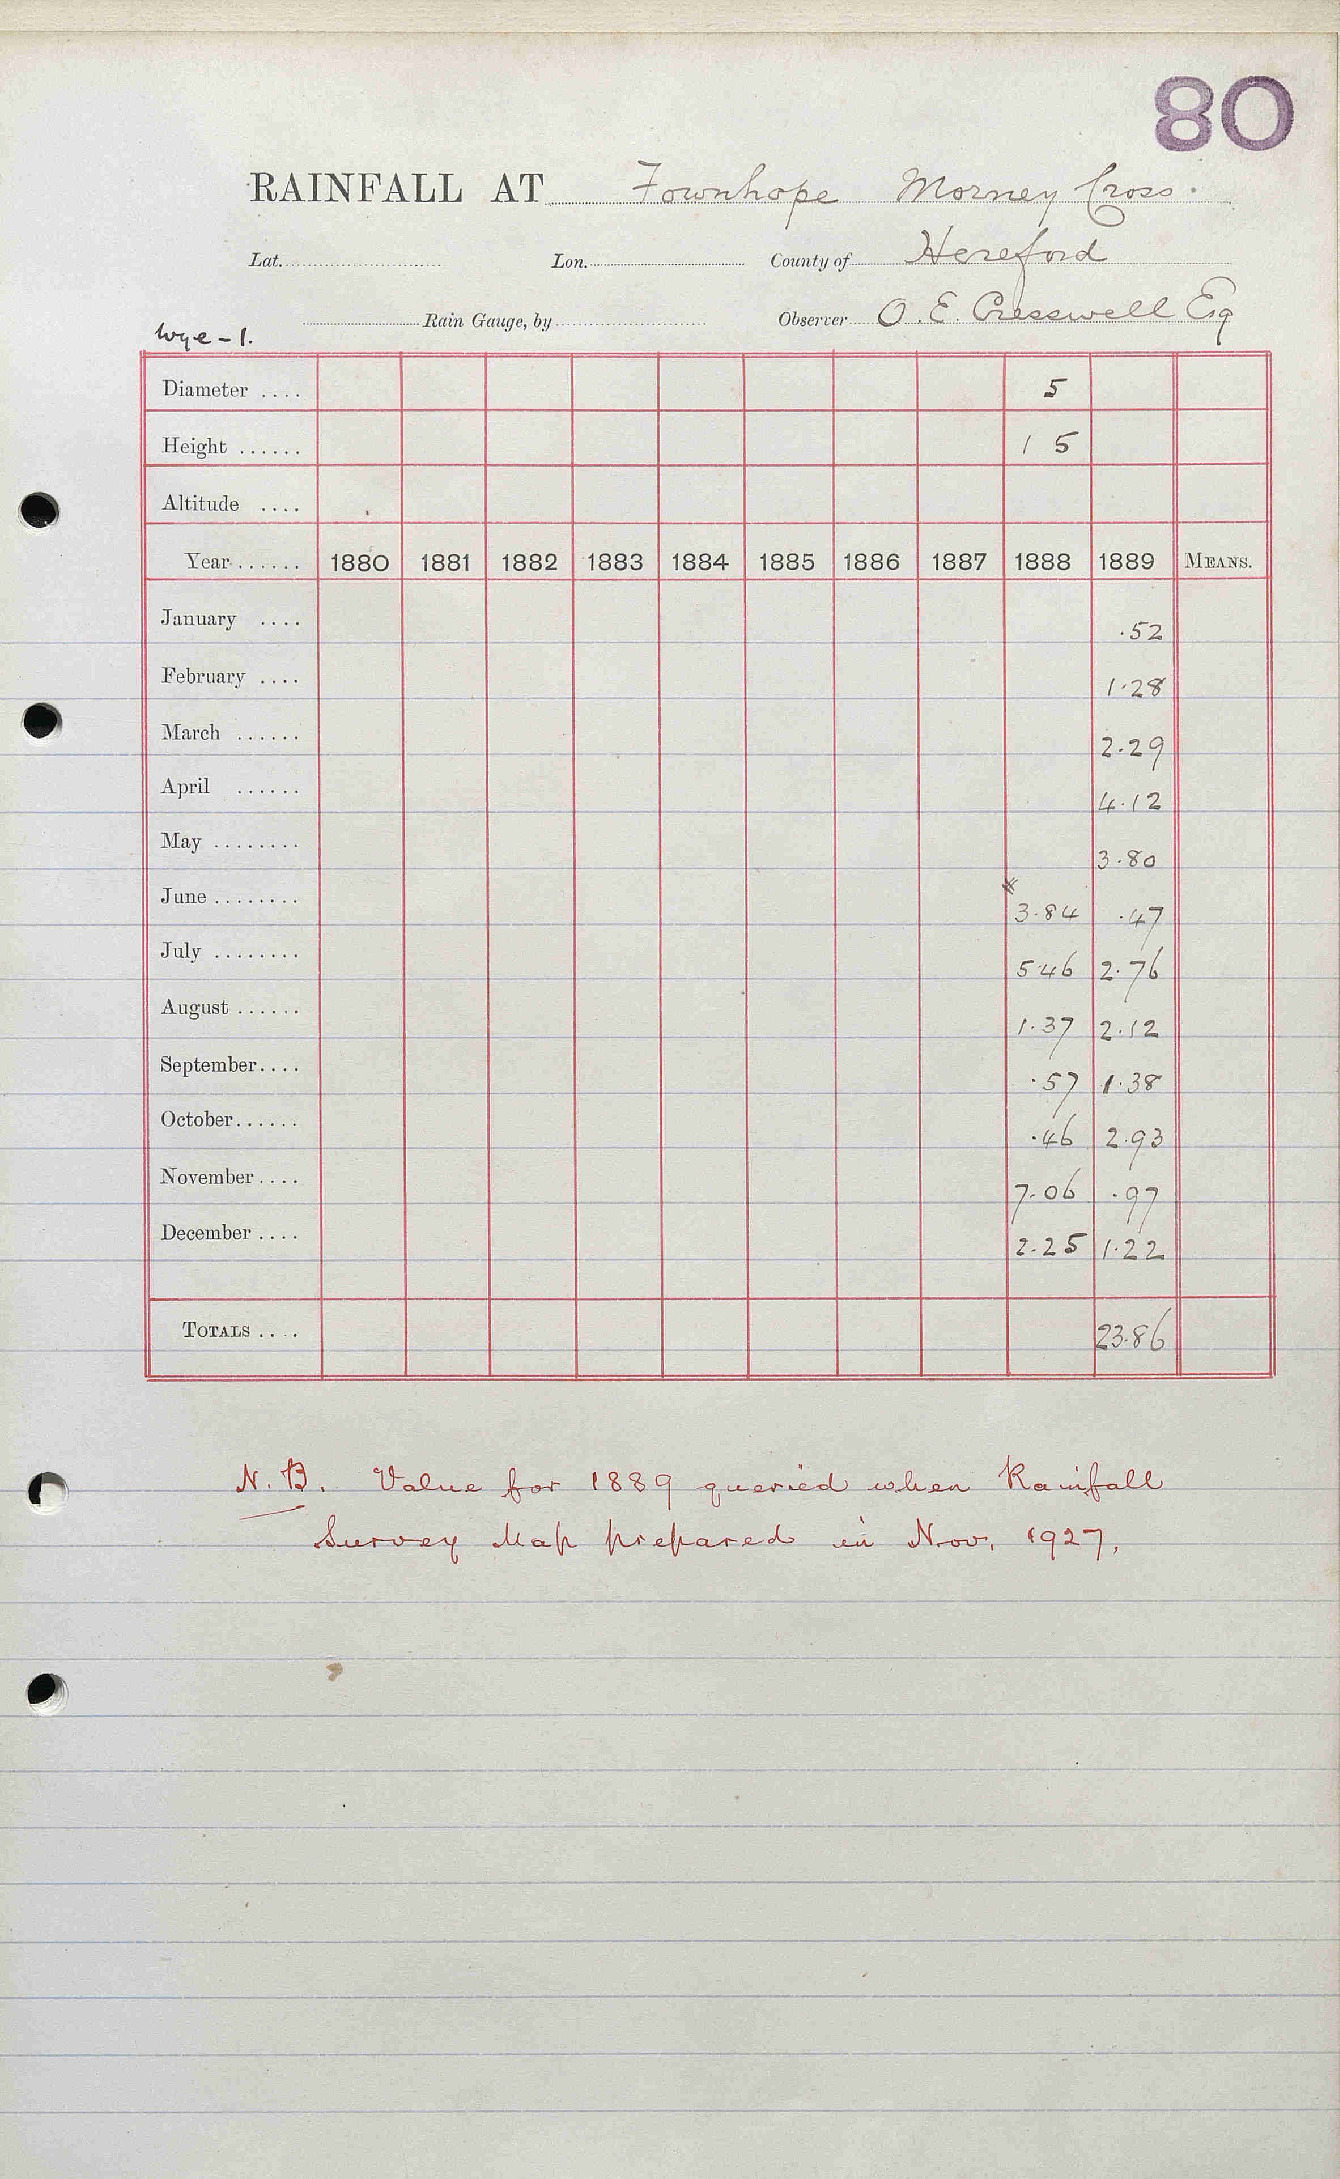 80
RAINFALL AT Fownhope Morney Cross.
Lat. Lon. County of Hereford
Rain Gauge, by Observer O. E. Cresswell Esq
Wye - 1.
Diameter .... 5
Height ...... 1 5
Altitude ....
Year ...... 1880 1881 1882 1883 1884 1885 1886 1887 1888 1889 MEANS.
January .... .52
February .... 1.28
March ...... 2.29
April ...... 4.12
May ........ 3.80
June ........ 3.84 .47
July ........ 5 46 2.76
August ...... 1.37 2.12
September.... .57 1.38
October...... .46 2.93
November .... 7.06 .97
December .... 2.25 1.22
TOTALS .... 23.86
N.B. Value for 1889 queried when Rainfall
Survey Map prepared in Nov. 1927.